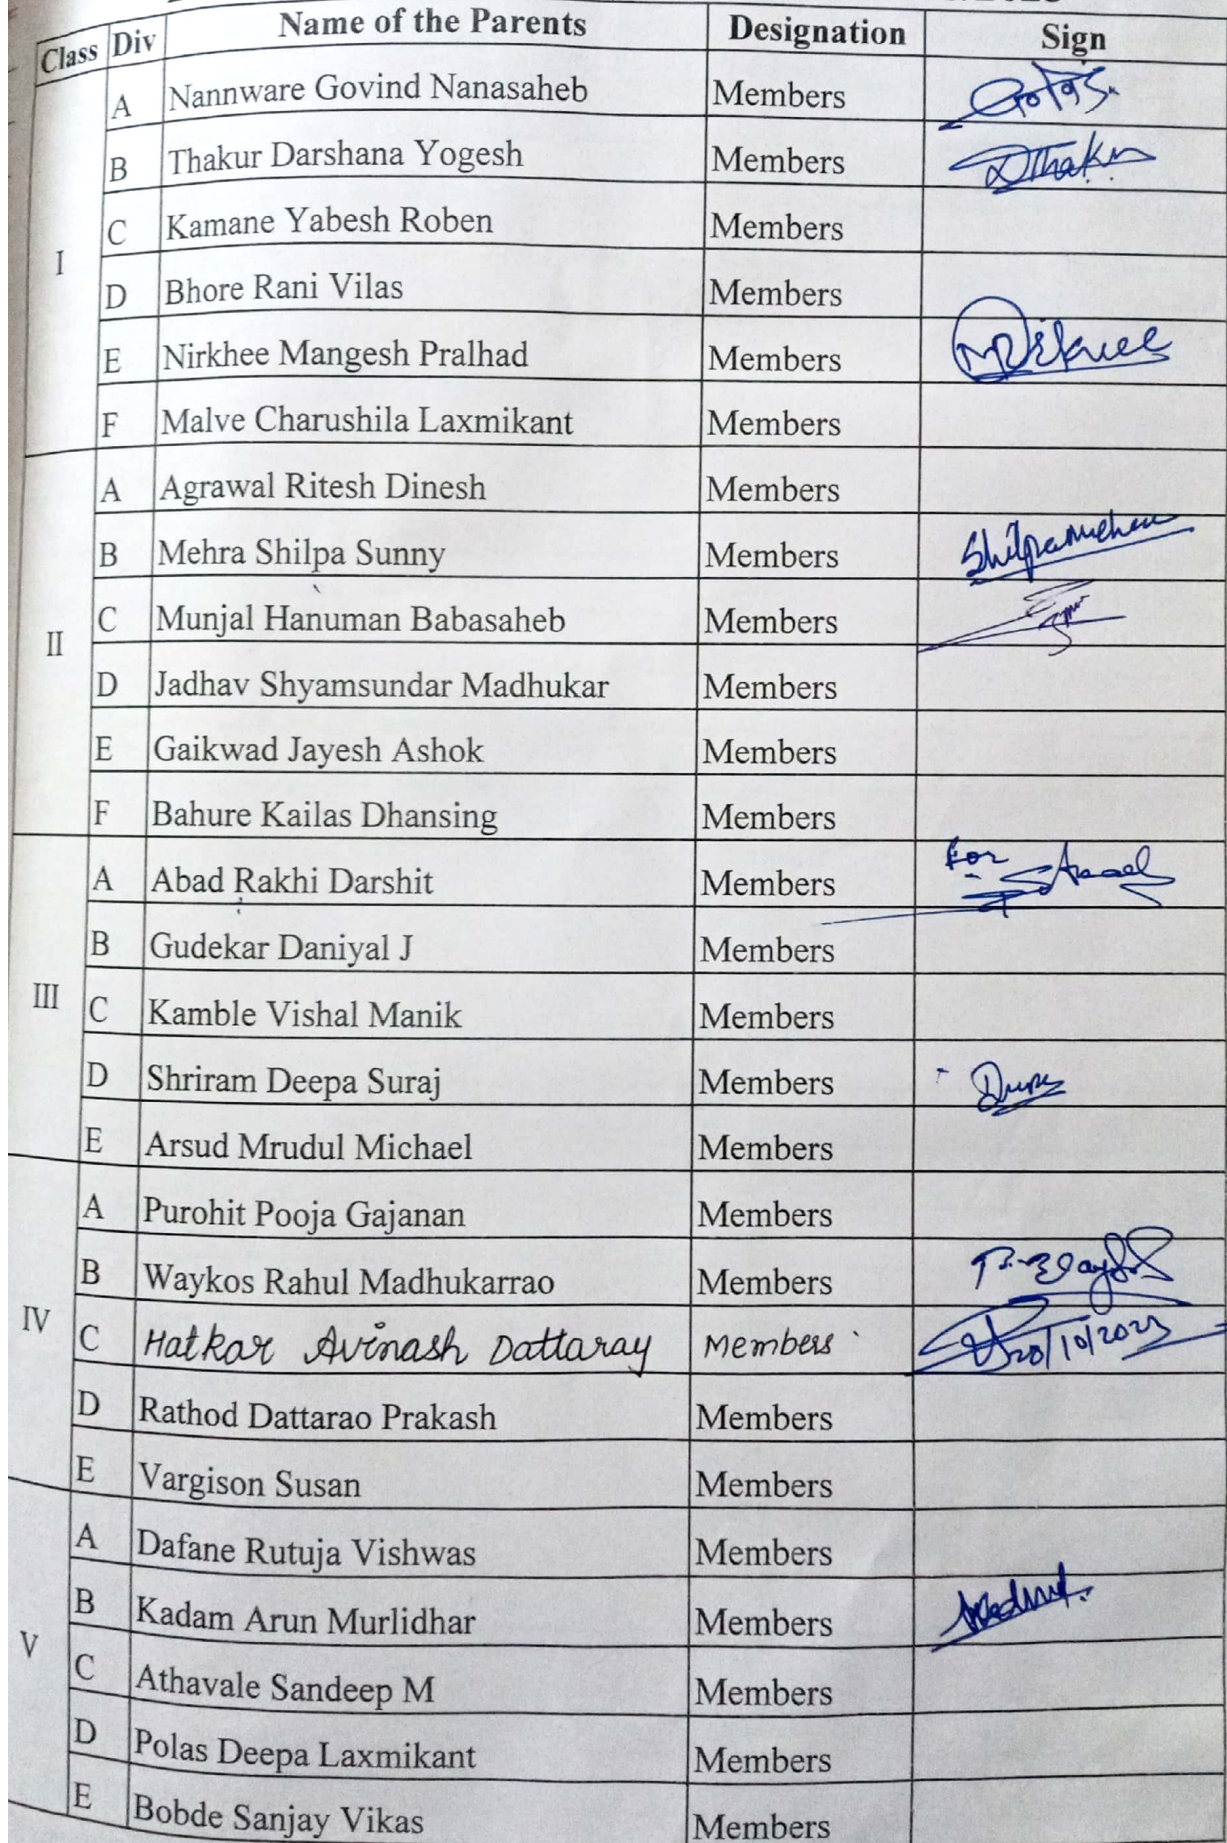 Class Div Name of the Parents Designation Sign
I
A Nannware Govind Nanasaheb Members
B Thakur Darshana Yogesh Members DThakur
C Kamane Yabesh Roben Members
D Bhore Rani Vilas Members
E Nirkhee Mangesh Pralhad Members
F Malve Charushila Laxmikant Members
II
A Agrawal Ritesh Dinesh Members
B Mehra Shilpa Sunny Members Shilpa Mehra
C Munjal Hanuman Babasaheb Members
D Jadhav Shyamsundar Madhukar Members
E Gaikwad Jayesh Ashok Members
F Bahure Kailas Dhansing Members
III
A Abad Rakhi Darshit Members For
B Gudekar Daniyal J Members
C Kamble Vishal Manik Members
D Shriram Deepa Suraj Members
E Arsud Mrudul Michael Members
IV
A Purohit Pooja Gajanan Members
B Waykos Rahul Madhukarrao Members
C Hatkar Avinash Dattaray Members 20/10/2023
D Rathod Dattarao Prakash Members
E Vargison Susan Members
V
A Dafane Rutuja Vishwas Members
B Kadam Arun Murlidhar Members
C Athavale Sandeep M Members
D Polas Deepa Laxmikant Members
E Bobde Sanjay Vikas Members